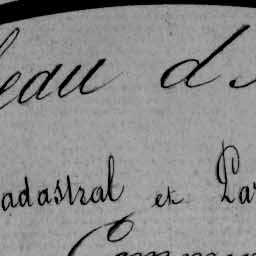 eau d
adastral et Pa
Commun